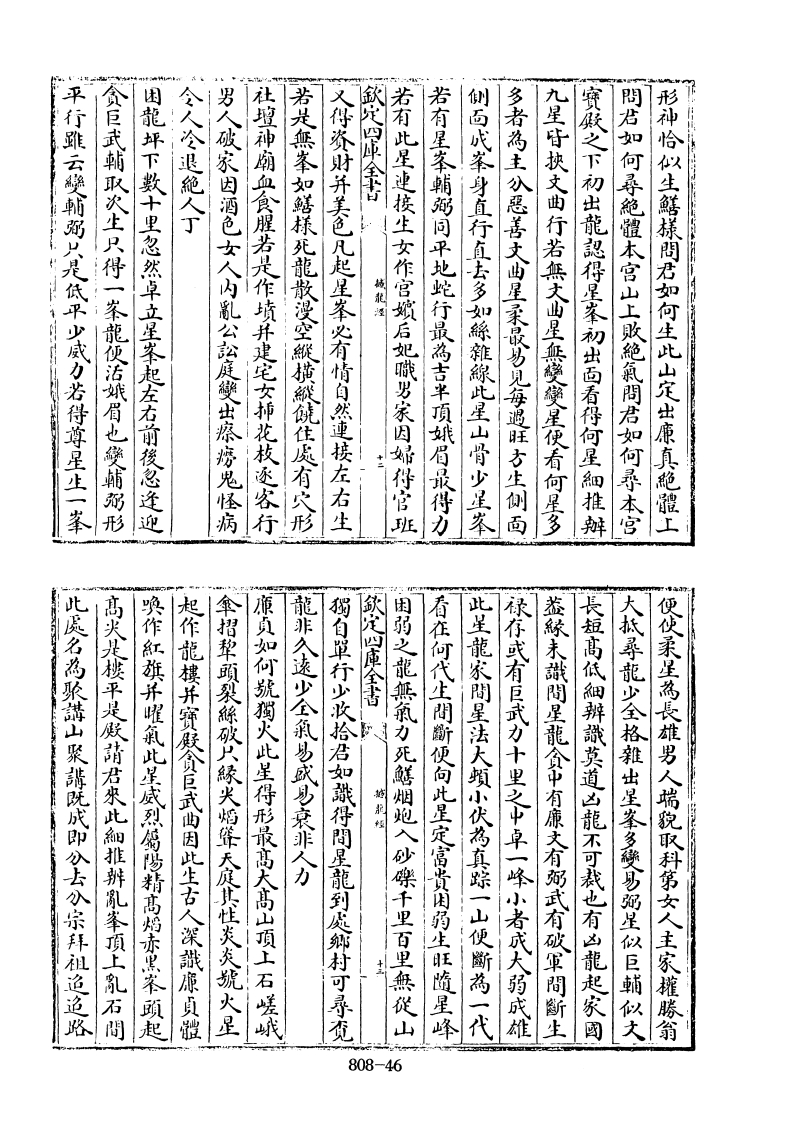 形神恰似生鱔様問君如何生此山定出廉真絶體上
問君如何尋絶體本宫山上敗絶氣問君如何尋本宫
寳殿之下初出龍認得星峯初出面看得何星細推辦
九星皆挾文曲行若無文曲星無變變星便看何星多
多者為主分惡善文曲星柔最易見每遇旺方生側面
側面成峯身直行直去多如絲雜線此星山骨少星峯
若有星峯輔弼同平地蛇行最為吉半頂娥眉最得力
若有此星連接生女作宫嬪后妃職男家因婦得官班
欽定四庫全書
撼龍經
十二
又得資財并美色凡起星峯必有情自然連接左右生
若是無峯如鱔様死龍散漫空縱横縱饒住處有穴形
社壇神廟血食腥若是作墳并建宅女揷花枝逐客行
男人破家因酒色女人内亂公訟庭變出瘵癆鬼怪病
令人冷退絶人丁
困龍坪下數十里忽然卓立星峯起左右前後忽逢迎
貪巨武輔取次生只得一峯龍便活娥眉也變輔弼形
平行雖云變輔弼只是低平少威力若得尊星生一峯
便使柔星為長雄男人端貌取科第女人主家權勝翁
大抵尋龍少全格雜出星峯多變易弼星似巨輔似文
長短髙低細辨識莫道凶龍不可裁也有凶龍起家國
葢緣未識間星龍貪中有廉文有弼武有破軍間斷生
禄存或有巨武力十里之中卓一峰小者成大弱成雄
此星龍家間星法大頓小伏為真踪一山便斷為一代
看在何代生間斷便向此星定富貴困弱生旺隨星峰
困弱之龍無氣力死鱔烟炮入砂礫千里百里無從山
欽定四庫全書
撼龍經
十三
獨自單行少收拾君如識得間星龍到處鄉村可尋覓
龍非久遠少全氣易盛易衰非人力
廉貞如何號獨火此星得形最髙大髙山頂上石嵯峨
傘摺犂頭裂絲破只緣尖熖聳天庭其性炎炎號火星
起作龍樓并寳殿貪巨武曲因此生古人深識廉貞體
喚作紅旗并曜氣此星威烈屬陽精髙熖赤黒峯頭起
髙尖是樓平是殿請君來此細推辨亂峯頂上亂石間
此處名為聚講山聚講既成即分去分宗拜祖迢迢路
808-46